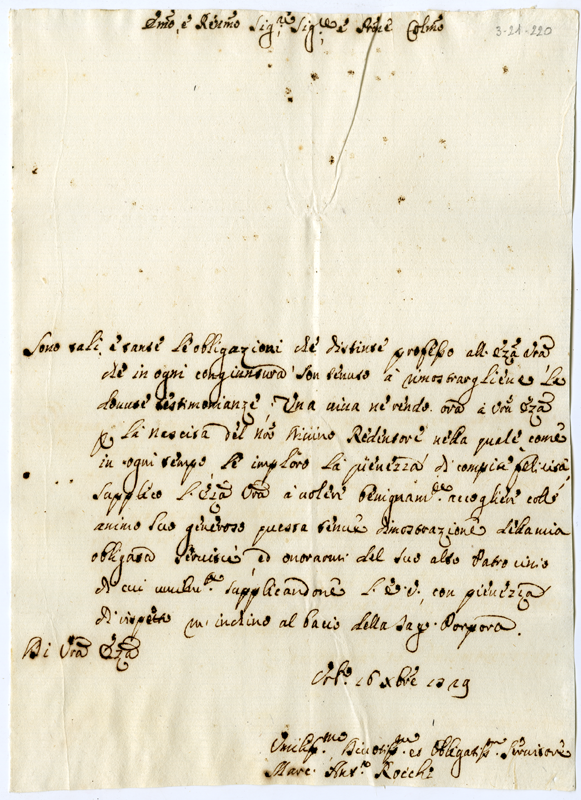 Emo, e Revmo Sig.re Sig.re e Prone Colmo
3-21-220
Sono tali, e tante le obligazioni che distinte professo all'Eza Vra
che in ogni congiuntura son tenuto à rimostrargliene le
dovute testimonianze; Una viva ne rendo ora à Vra Eza
p la nascita del nro Divino Redentore nella quale come
in ogni tempo le imploro la pienezza di compite felicità
Supplico L'Eza Vra à voler benignam.te accoglier coll'
animo suo generoso questa tenue dimostrazione della mia
obligata servitù ed onorarmi del suo alto Patrocinio
di cui umilm.te supplicandone L'E.V., con pienezza
di rispetto m'inchino al bacio della Sag. Porpora.
Di Vra Eza
16 Xbre
Umiliss.mo Divotiss.mo et Obligatiss.mo Servitore
Marc. Ant.o Rocchi